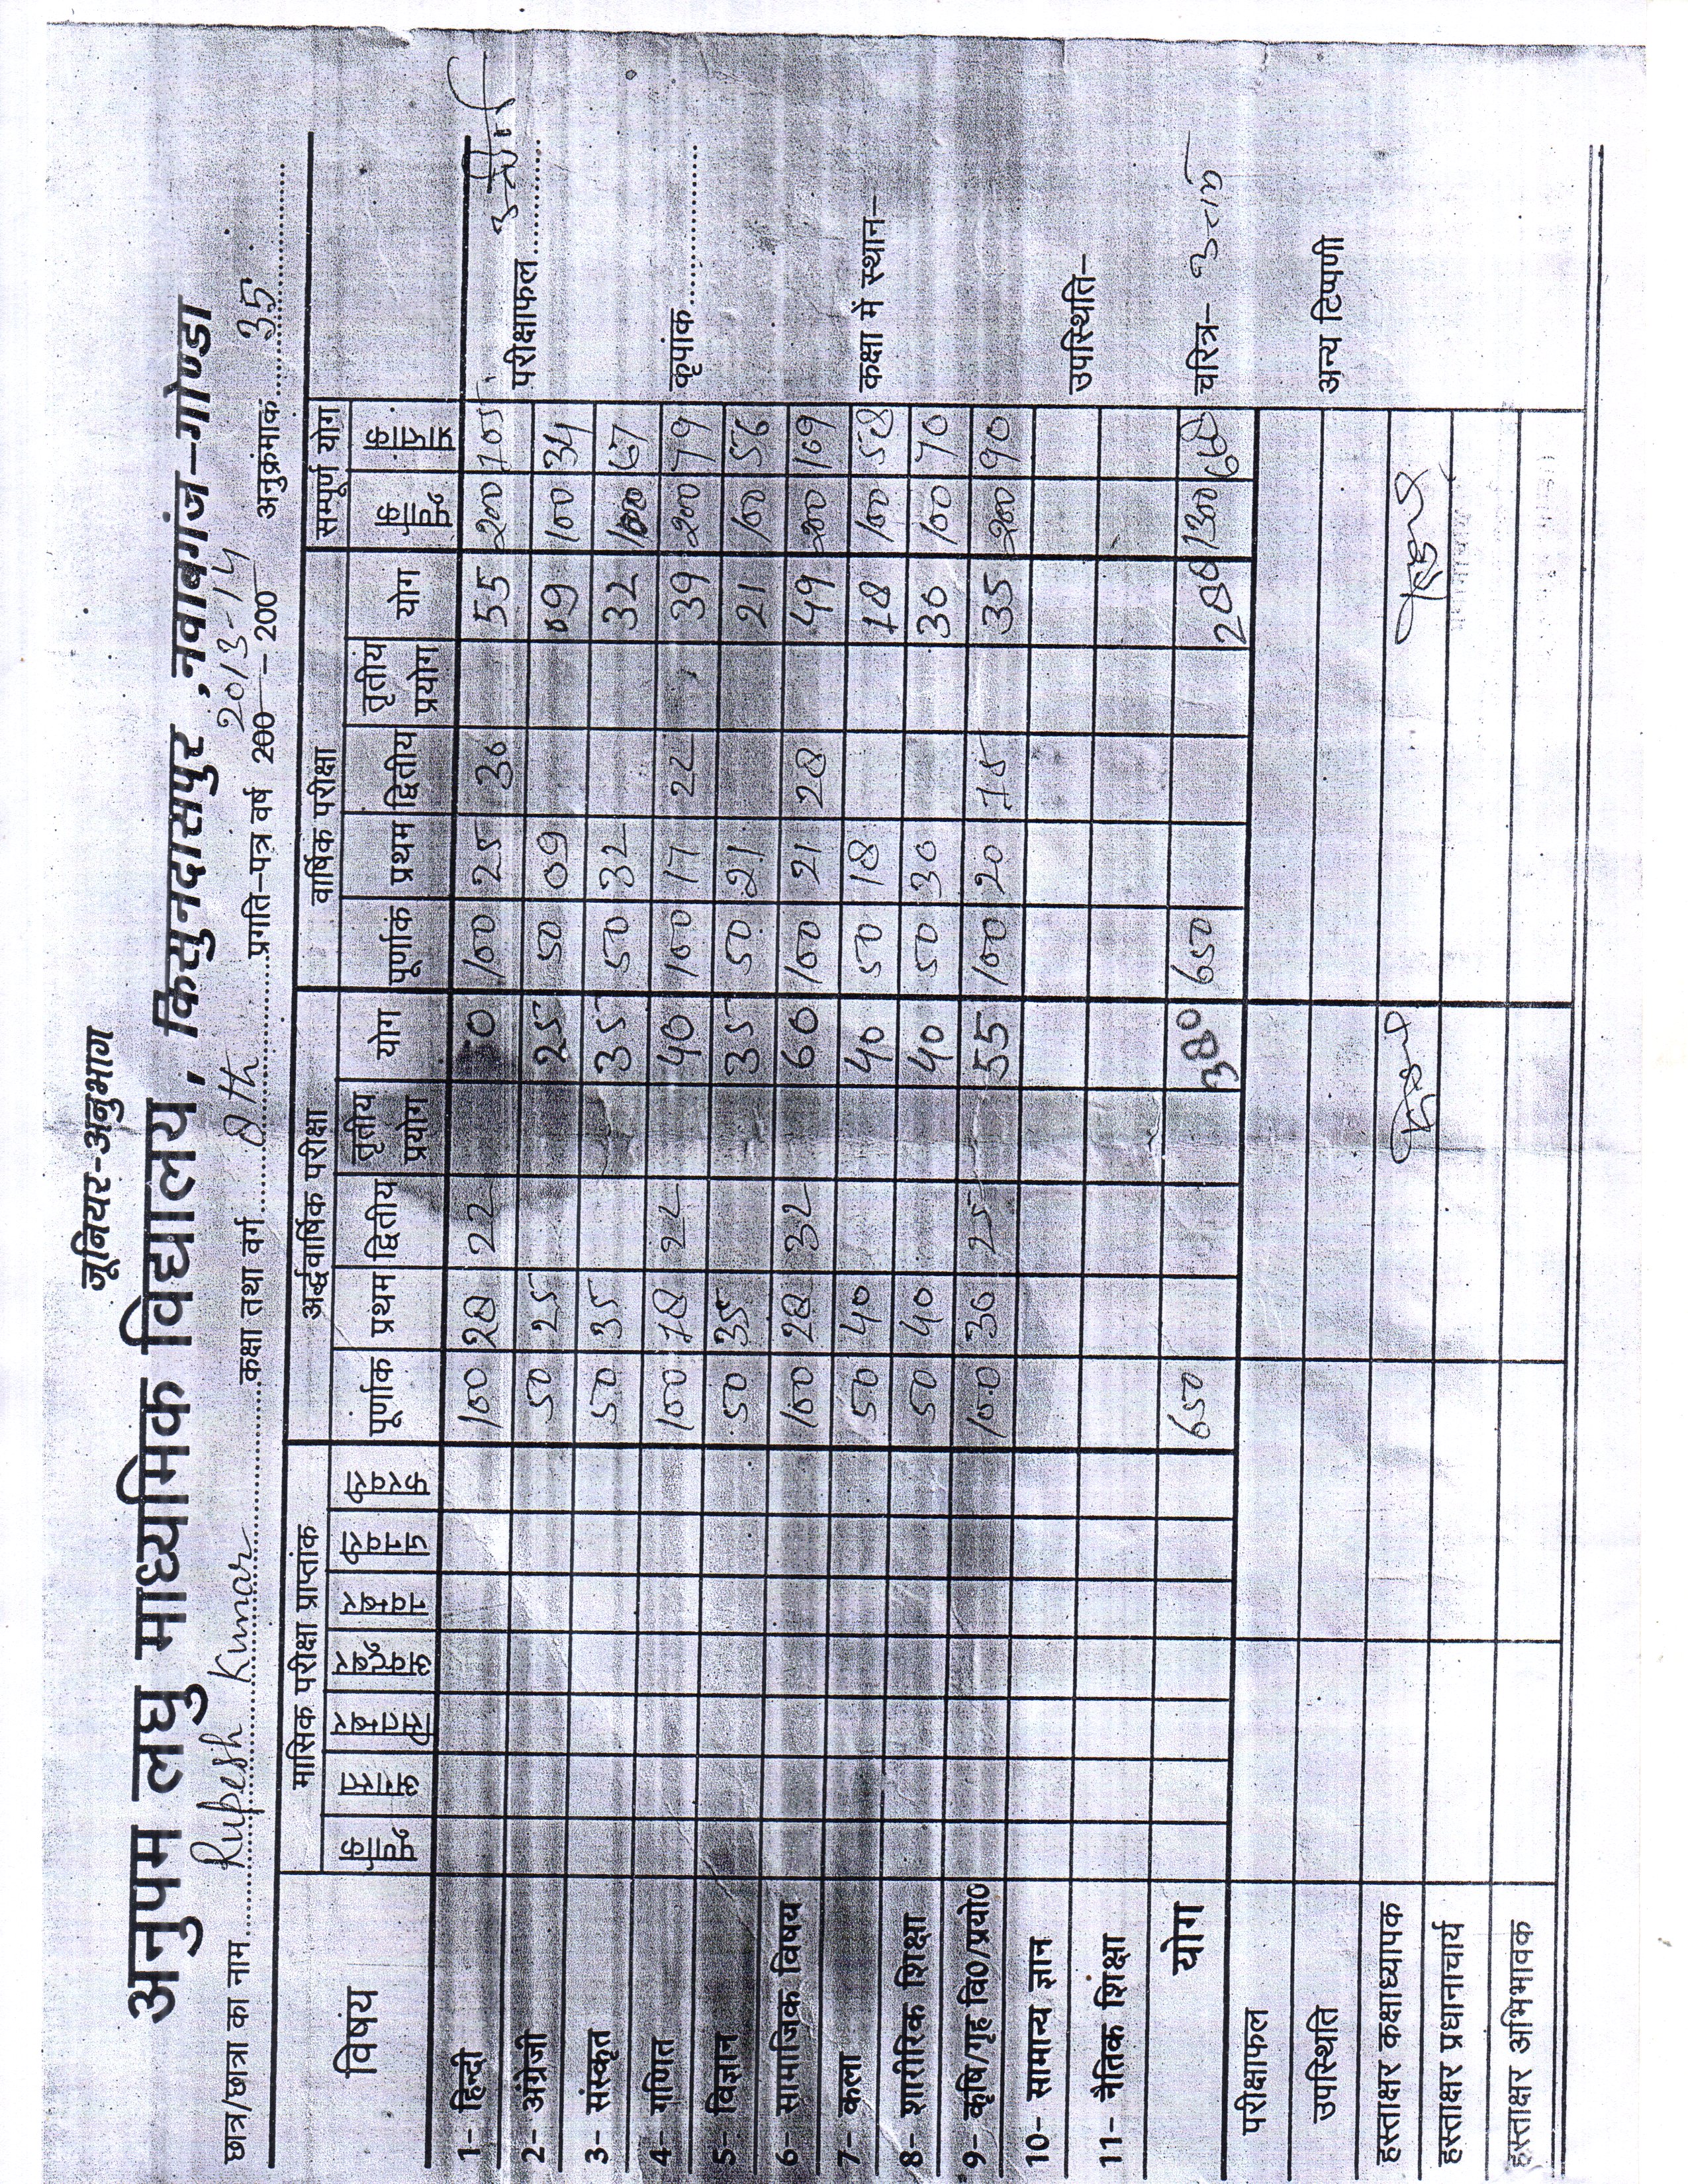 जूनियर-अनुभाग
अनुपम लघु माध्यमिक विद्यालय , किसुनदासपुर , नवाबगंज-गोण्डा
छात्र/छात्रा का नाम Rupesh Kumar कक्षा तथा वर्ग 8th प्रगति-पत्र वर्ष 200 - 200 2013-14 अनुक्रमांक 35
विषय मासिक परीक्षा प्राप्तांक अर्द्धवार्षिक परीक्षा वार्षिक परीक्षा सम्पूर्ण योग
पूर्णांक अगस्त सितम्बर अक्टूबर नवम्बर जनवरी फरवरी पूर्णांक प्रथम द्वितीय तृतीय प्रयोग योग पूर्णांक प्रथम द्वितीय तृतीय प्रयोग योग पूर्णांक प्राप्तांक
1- हिन्दी 100 28 22 0 100 25 30 55 200 105
2- अंग्रेजी 50 25 25 50 09 09 100 34
3- संस्कृत 50 35 35 50 32 32 100 67
4- गणित 100 18 22 40 100 17 22 39 200 79
5- विज्ञान 50 35 35 50 21 21 100 56
6- सामाजिक विषय 100 28 32 60 100 21 28 49 200 109
7- कला 50 40 40 50 18 18 100 58
8- शारीरिक शिक्षा 50 40 40 50 30 30 100 70
9- कृषि/गृह वि0/प्रयो0 100 30 25 55 100 20 15 35 200 90
10- सामान्य ज्ञान
11- नैतिक शिक्षा
योग 650 380 650 288 1300
परीक्षाफल
उपस्थिति
हस्ताक्षर कक्षाध्यापक
हस्ताक्षर प्रधानाचार्य
हस्ताक्षर अभिभावक
परीक्षाफल उत्तीर्ण
कृपांक
कक्षा में स्थान-
उपस्थिति-
चरित्र- उत्तम
अन्य टिप्पणी